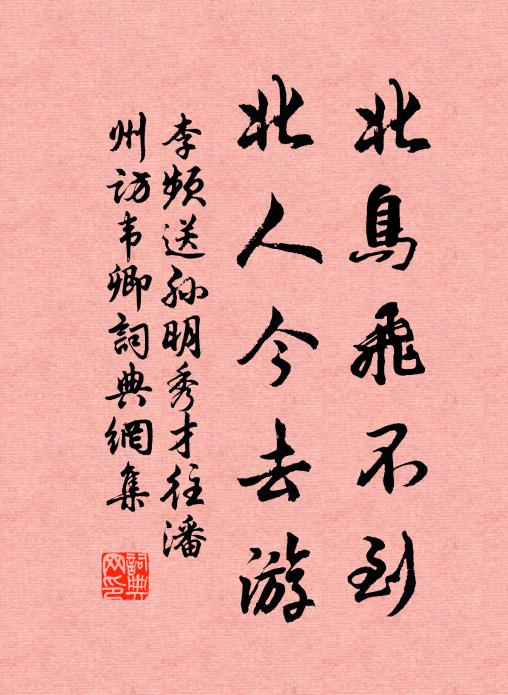 北鳥飛不到
北人今去游
李频送孙明秀才往潘
州访韦卿詞典網集
詞典
网印